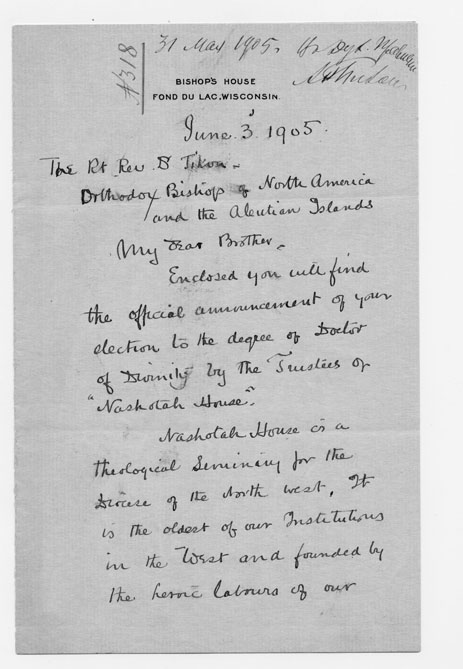 N318
31 May 1905.
BISHOP'S HOUSE
FOND DU LAC, WISCONSIN.
June 3 1905.
The Rt Rev. D Tikon -
Orthodox Bishop of North America
and the Aleutian Islands
My dear Brother -
Enclosed you will find
the official announcement of your
election to the degree of Doctor
of Divinity by the Trustees of
"Nashotah House".
Nashotah House is a
theological Seminary for the
Diocese of the North West. It
is the oldest of our Institutions
in the West and founded by
the heroic labours of our